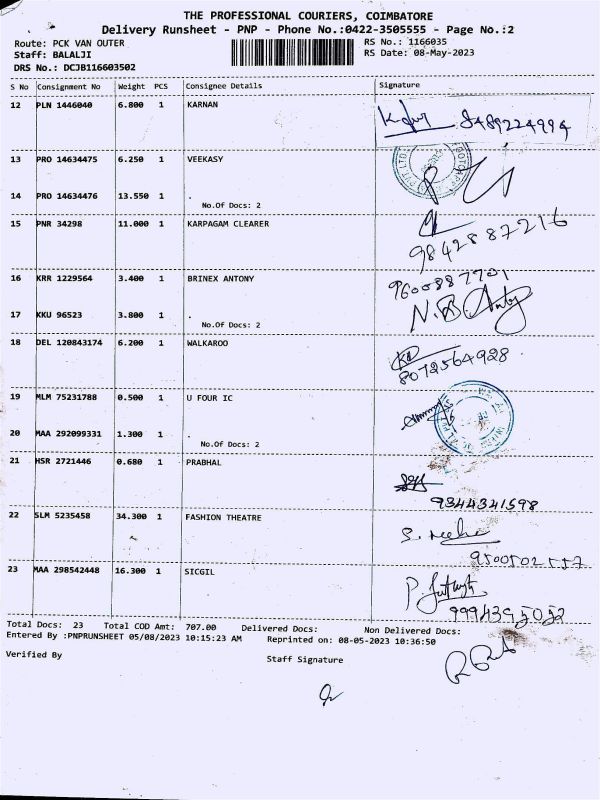 THE PROFESSIONAL COURIERS, COIMBATORE
Delivery Runsheet - PNP - Phone No.:0422-3505555 - Page No.:2
Route: PCK VAN OUTER
RS No.: 1166035
Staff: BALALJI
RS Date: 08-May-2023
DRS No.: DCJB116603502
S No Consignment No Weight PCS Consignee Details Signature
12 PLN 1446040 6.800 1 KARNAN
8489224994
13 PRO 14634475 6.250 1 VEEKASY
14 PRO 14634476 13.550 1 .
No.Of Docs: 2
15 PNR 34298 11.000 1 KARPAGAM CLEARER
9842887216
16 KRR 1229564 3.400 1 BRINEX ANTONY
9600887701
17 KKU 96523 3.800 1 .
N.B Antony
No.Of Docs: 2
18 DEL 120843174 6.200 1 WALKAROO
8072564928
19 MLM 75231788 0.500 1 U FOUR IC
20 MAA 292099331 1.300 1 .
No.Of Docs: 2
21 HSR 2721446 0.680 1 PRABHAL
9344341598
22 SLM 5235458 34.300 1 FASHION THEATRE
9500502557
23 MAA 298542448 16.300 1 SICGIL
9994395052
Total Docs: 23 Total COD Amt: 707.00 Delivered Docs: Non Delivered Docs:
Entered By :PNPRUNSHEET 05/08/2023 10:15:23 AM Reprinted on: 08-05-2023 10:36:50
Verified By
Staff Signature